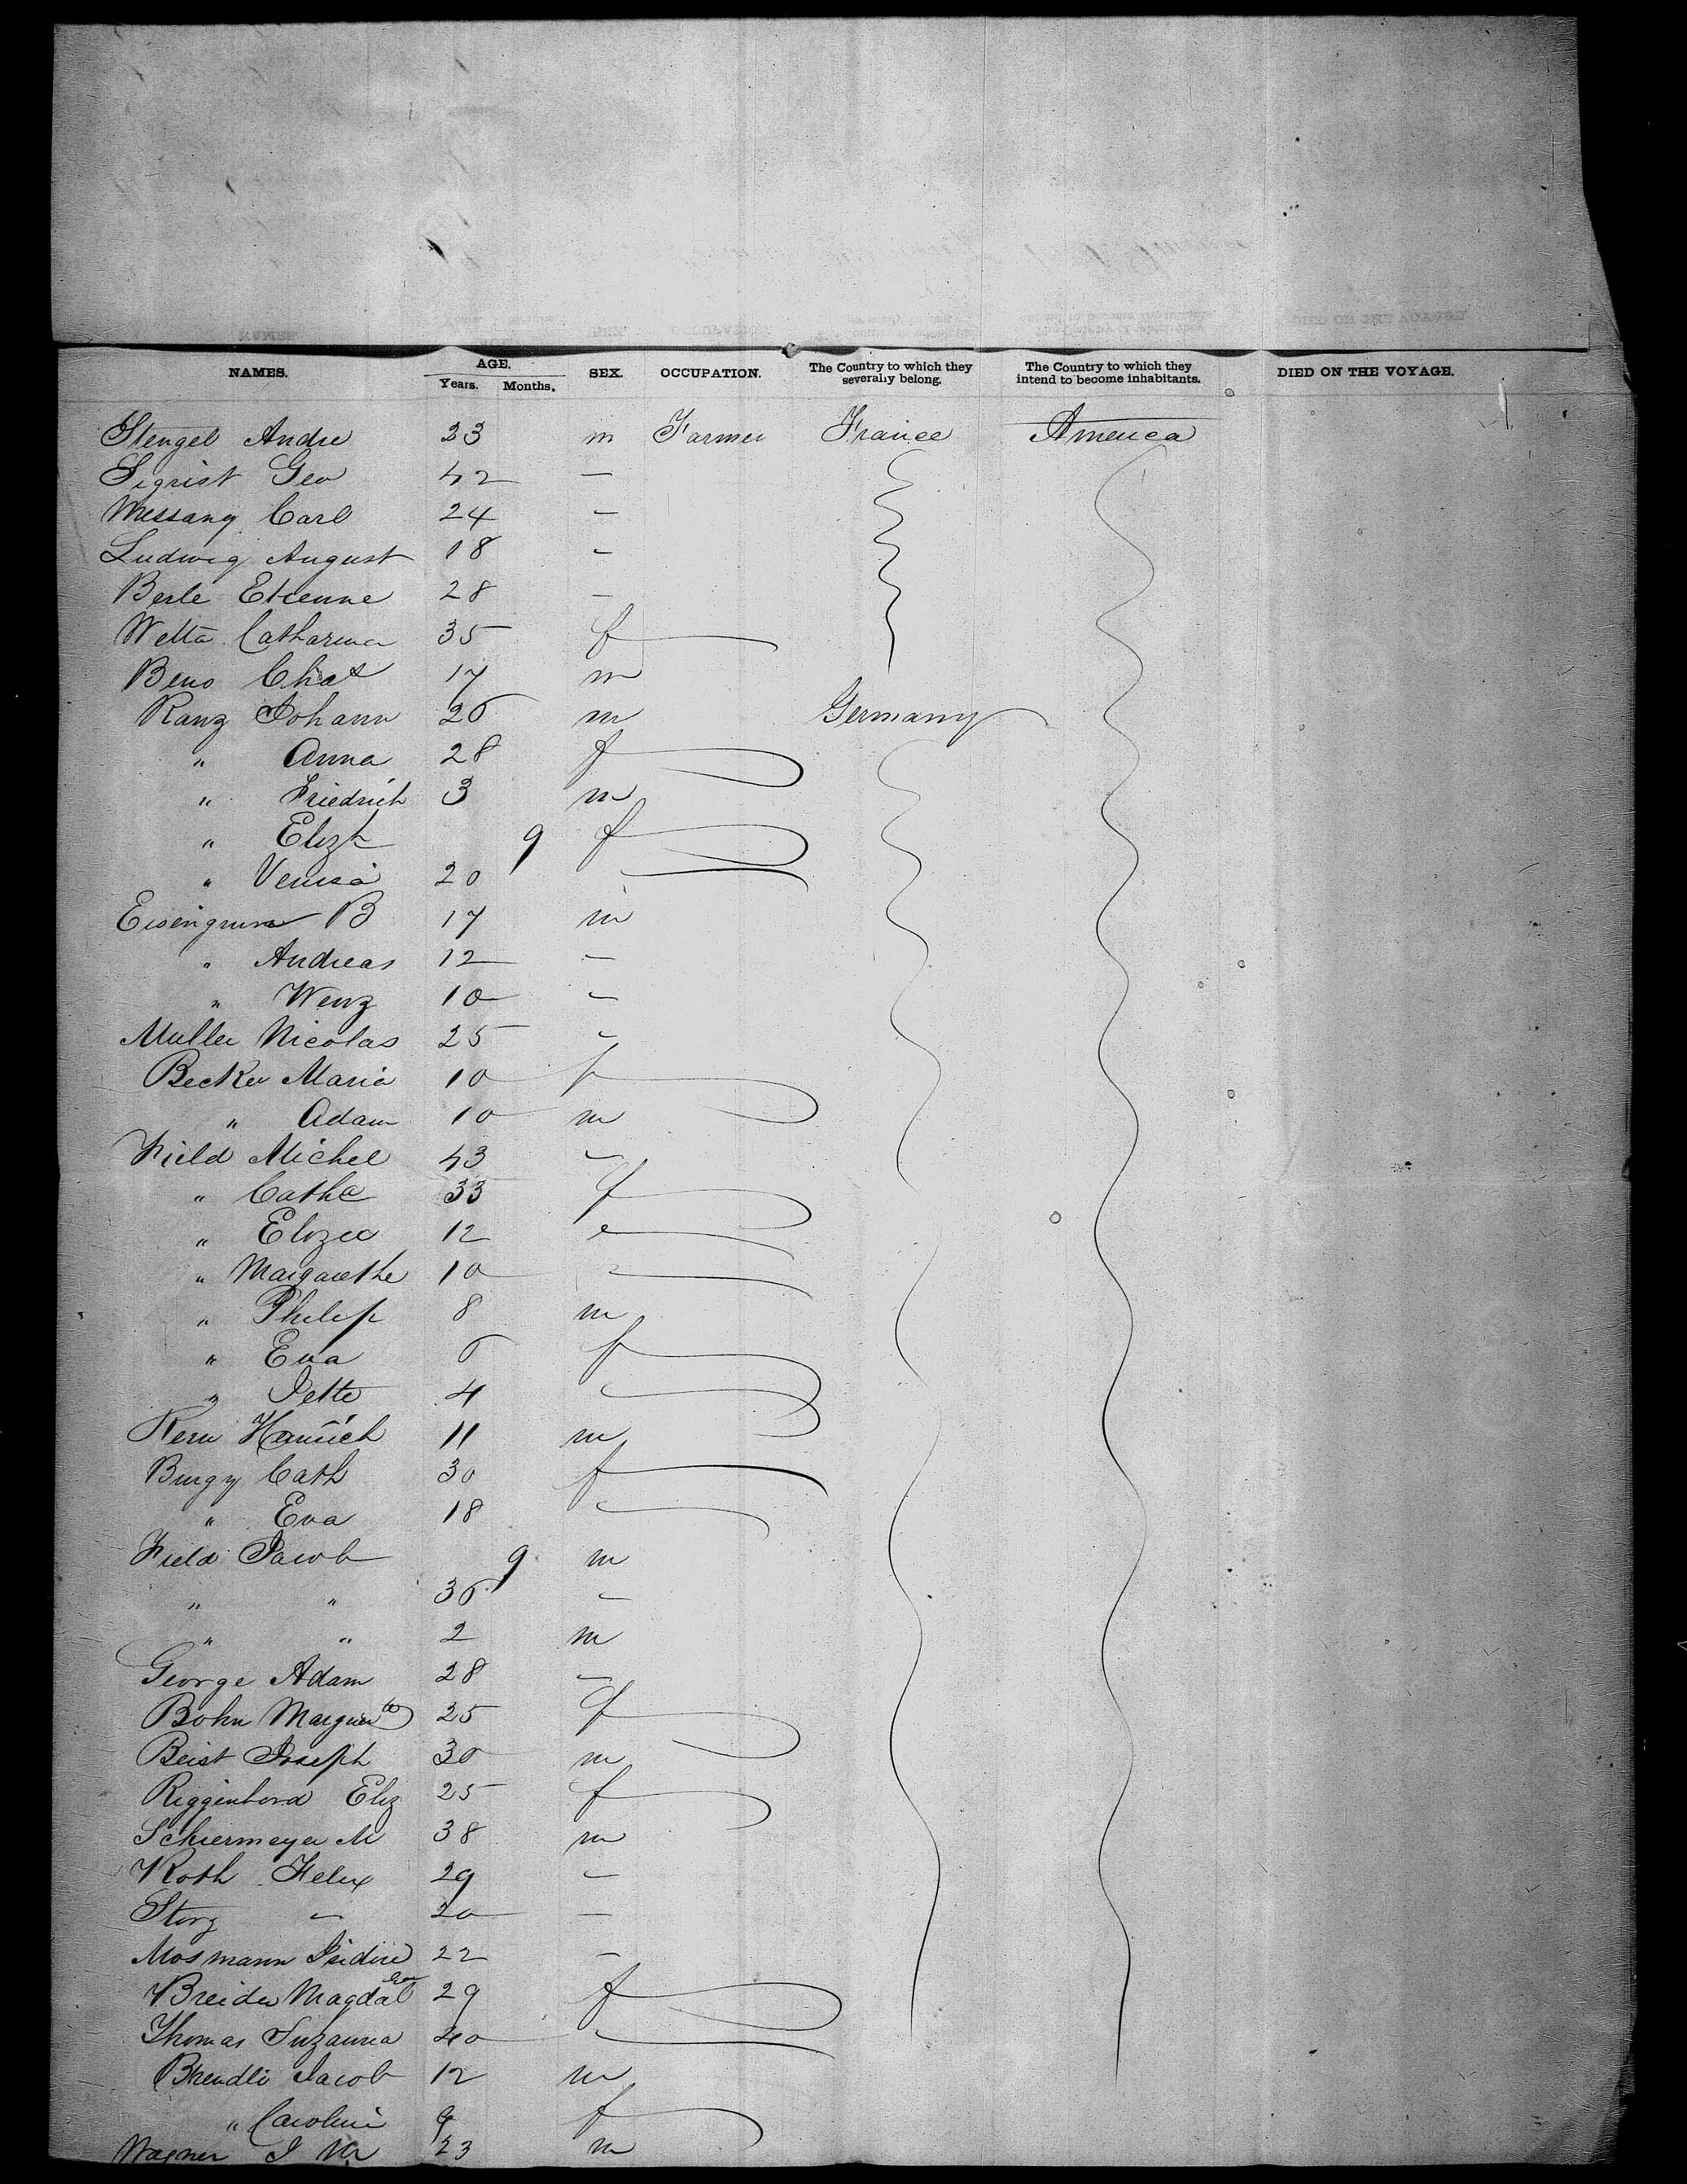 NAMES. AGE. SEX. OCCUPATION. The Country to which they severally belong. The Country to which they intend to become inhabitants. DIED ON THE VOYAGE.
Years. Months.
Stengel Andre 23 m Farmer France America
Sigrist Geo 42 —
Messang Carl 24 —
Ludwig August 18 —
Berle Etienne 28 —
Wetta Catharina 35 f
Beno Chas 17 m
Ranz Johann 26 m Germany
" Anna 28 f
" Friedrich 3 m
" Elizt 9 f
" 20
Eisengrun B 17 m
" Andreas 12 —
" Wenz 10 —
Muller Nicolas 25 —
Becker Maria 10 f
" Adam 10 m
Field Michel 43 —
" Catha 33 f
" Eliza 12
" Margarethe 10
" Philip 8 m
" Eva 6 f
" Jette 4
Kern Heinrich 11 m
Burgy Cath 30 f
" Eva 18
Field Jacob 9 m
" " 36 —
" " 2 m
George Adam 28 —
Bohn Marguerte 25 f
Beist Joseph 30 m
Eliz 25 f
Schiermeyer M 38 m
Roth Felix 29 —
Storz — 20 —
Mosmann Isidore 22 —
Breider Magdal 29 f
Thomas Suzanna 40
Brendli Jacob 12 m
" Caroline 9 f
Wagner J 23 m